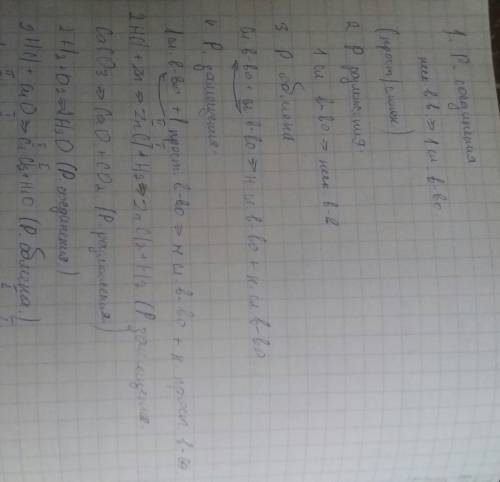 1 Р. соединения
неск в-в ⇒ 1 сл. в-во
(прост/сложн)
2 Р разложения.
1 сл в-во ⇒ неск в-в
3 Р обмена
сл в-во + сл в-во ⇒ н сл в-во + н сл в-во
4 Р. замещения.
1 сл в-во + 1 прост в-во ⇒ н сл в-во + н прост в-во
2HCl + Zn ⇒ ZnCl2 + H2 (Р замещения
CaCO3 ⇒ CaO + CO2 (Р разложения)
2H2 + O2 ⇒ 2H2O (Р соединения)
2HCl + CuO ⇒ CuCl2 + H2O (Р. обмена.)